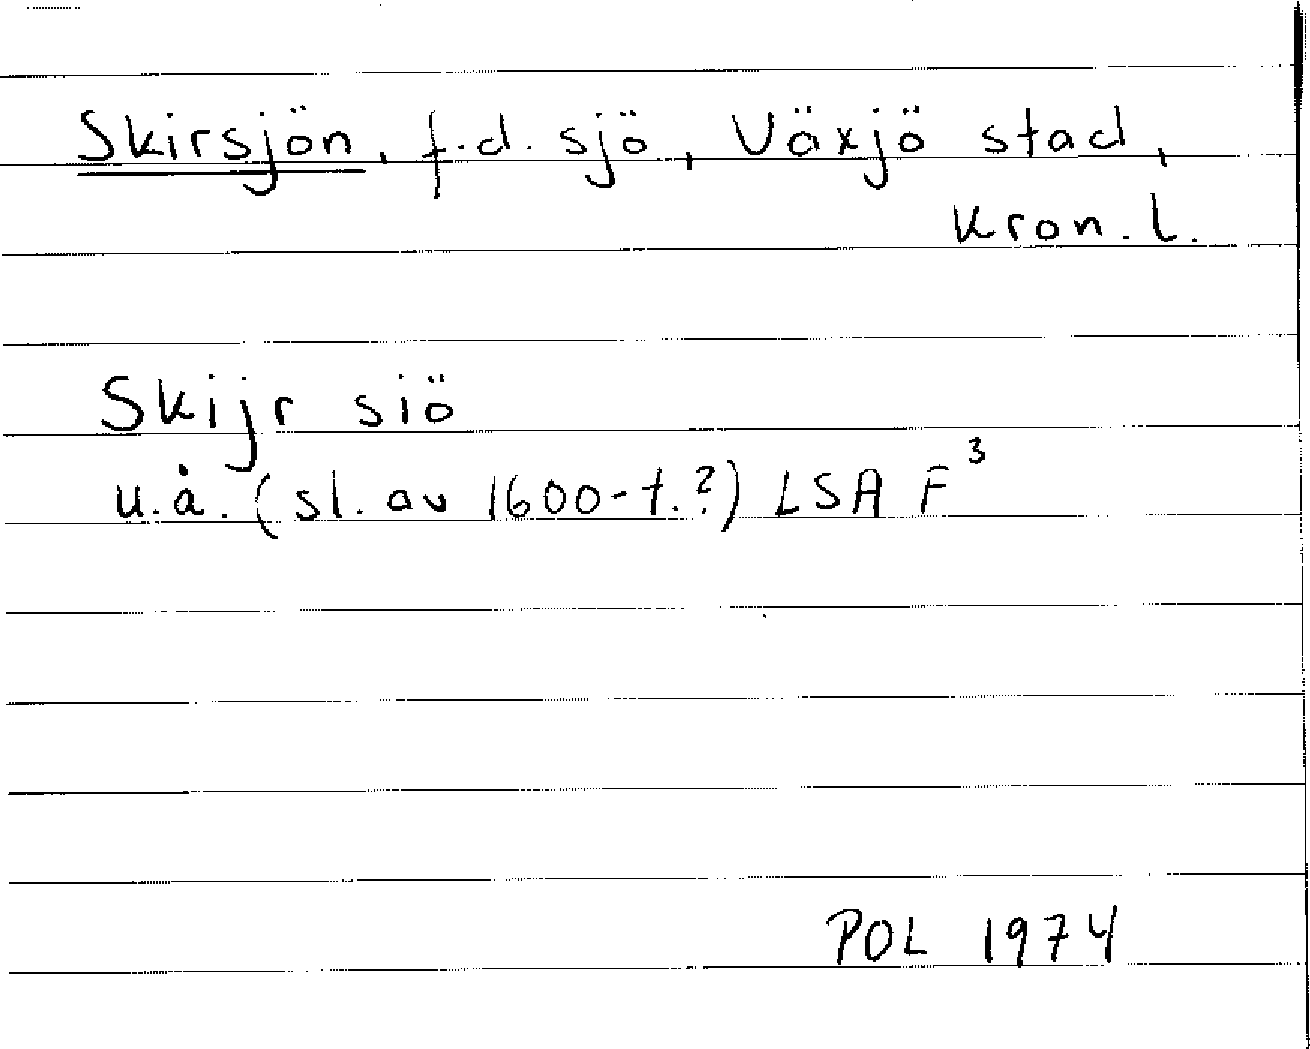 Skirsjön, f.d. sjö, Växjö stad,
Kron. l.
Skijr siö
u.å. (sl. av 1600-t.?) LSA F³
POL 1974